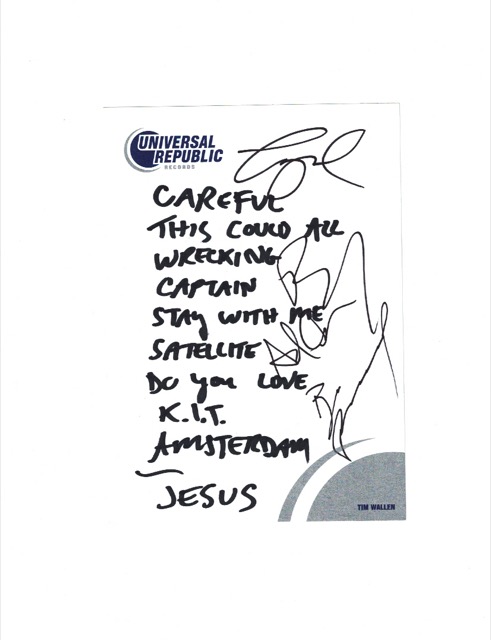 UNIVERSAL
REPUBLIC
RECORDS
CAREFUL
THIS COULD ALL
WRECKING
CAPTAIN
STAY WITH ME
SATELLITE
DO YOU LOVE
K.I.T.
AMSTERDAM
JESUS
TIM WALLEN